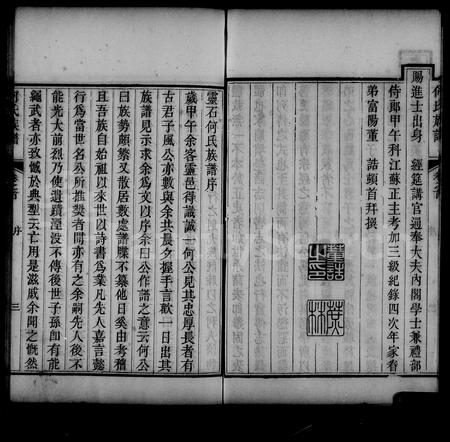 何氏族譜
賜進士出身 經筵講官通奉大夫內閣學士兼禮部
侍郎甲午科江蘇正主考加三級紀錄四次年家眷
弟富陽董 誥頓首拜撰
董誥
之印
蔗林
靈石何氏族譜序
歲甲午余客靈邑得識誠一何公見其忠厚長者有
古君子風公亦數與余共晨夕握手言歡一日出其
族譜見示求余為文以序余曰公作譜之意云何公
曰吾族勢頗繁又散居數處譜牒不纂他日奚由考稽
且吾族自始祖以來世以詩書為業凡先人嘉言懿
行為當世名公所推獎者間亦有之余嗣先人後不
能光大前烈乃使遺蹟湮沒不傳後世子孫即有能
繩武者亦致憾於典型云亡用是滋戚余聞之慨然
何氏族譜
序
三